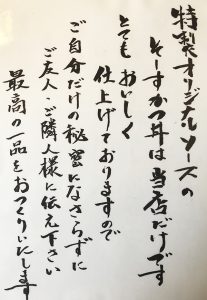 特製オリジナルソースの
そーすかつ丼は当店だけです
とてもおいしく
仕上げておりますので
ご自分だけの秘密になさらずに
ご友人・ご隣人様に伝え下さい
最高の一品をおつくりいたします